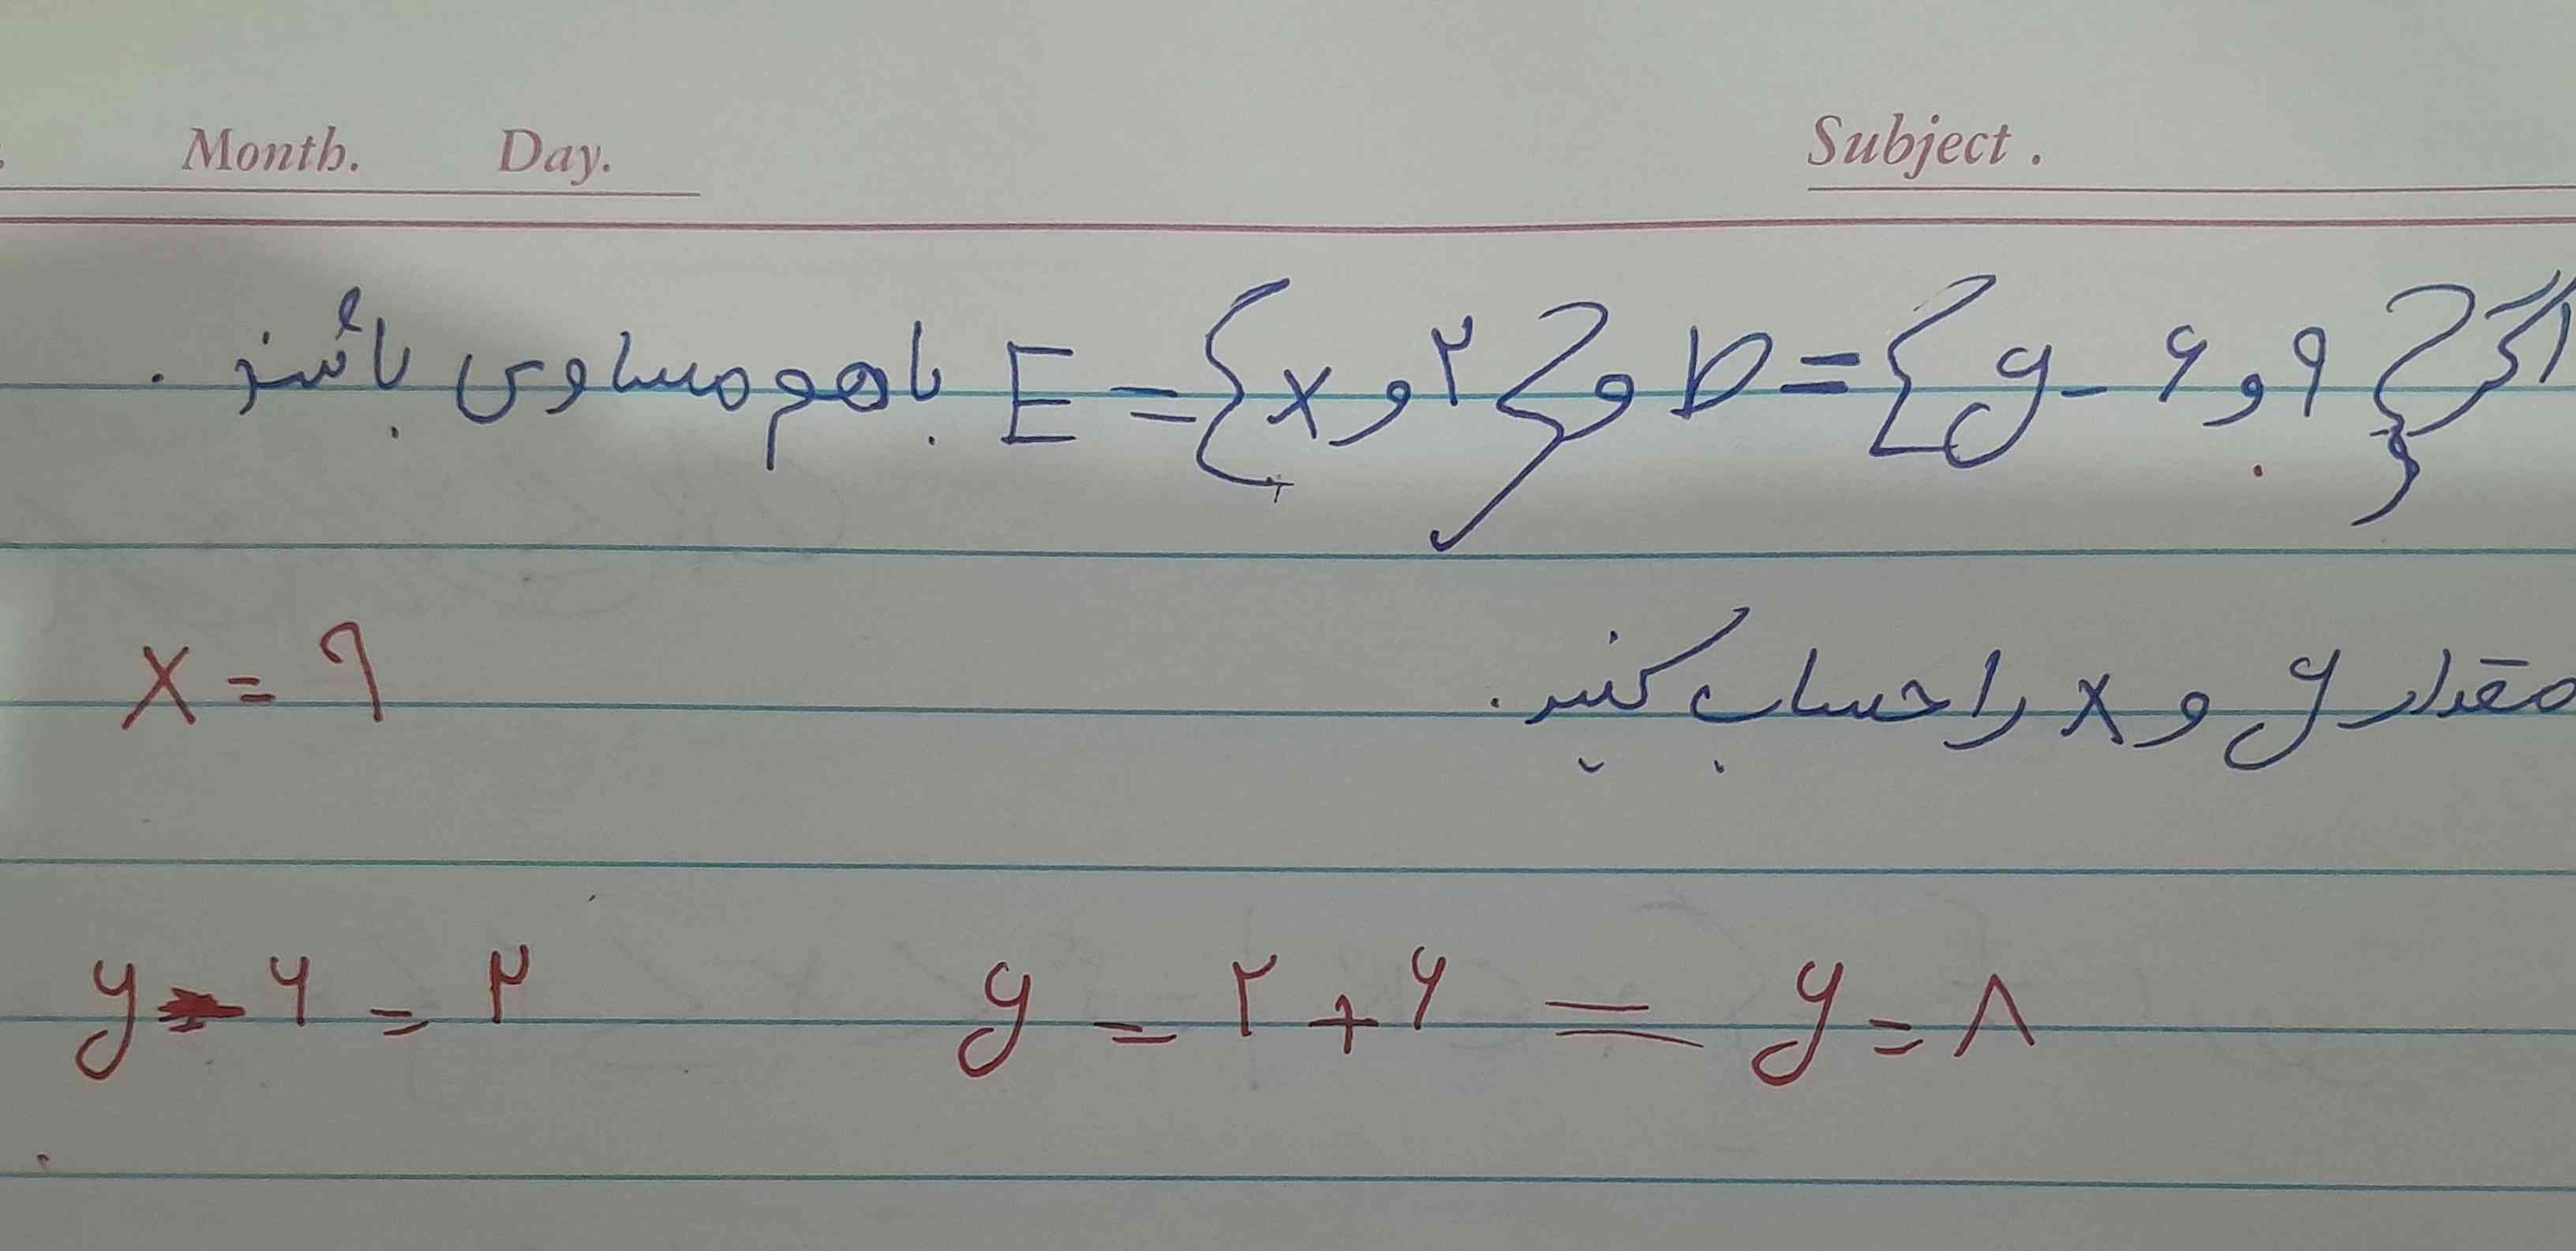 Month. Day. Subject .
اگر {۹ و ۶ - y} = D و {۲ و x} = E با هم مساوی باشند .
مقدار y و x را حساب کنید .
x = ۹
y - ۶ = ۲ y = ۲ + ۶ = y = ۸